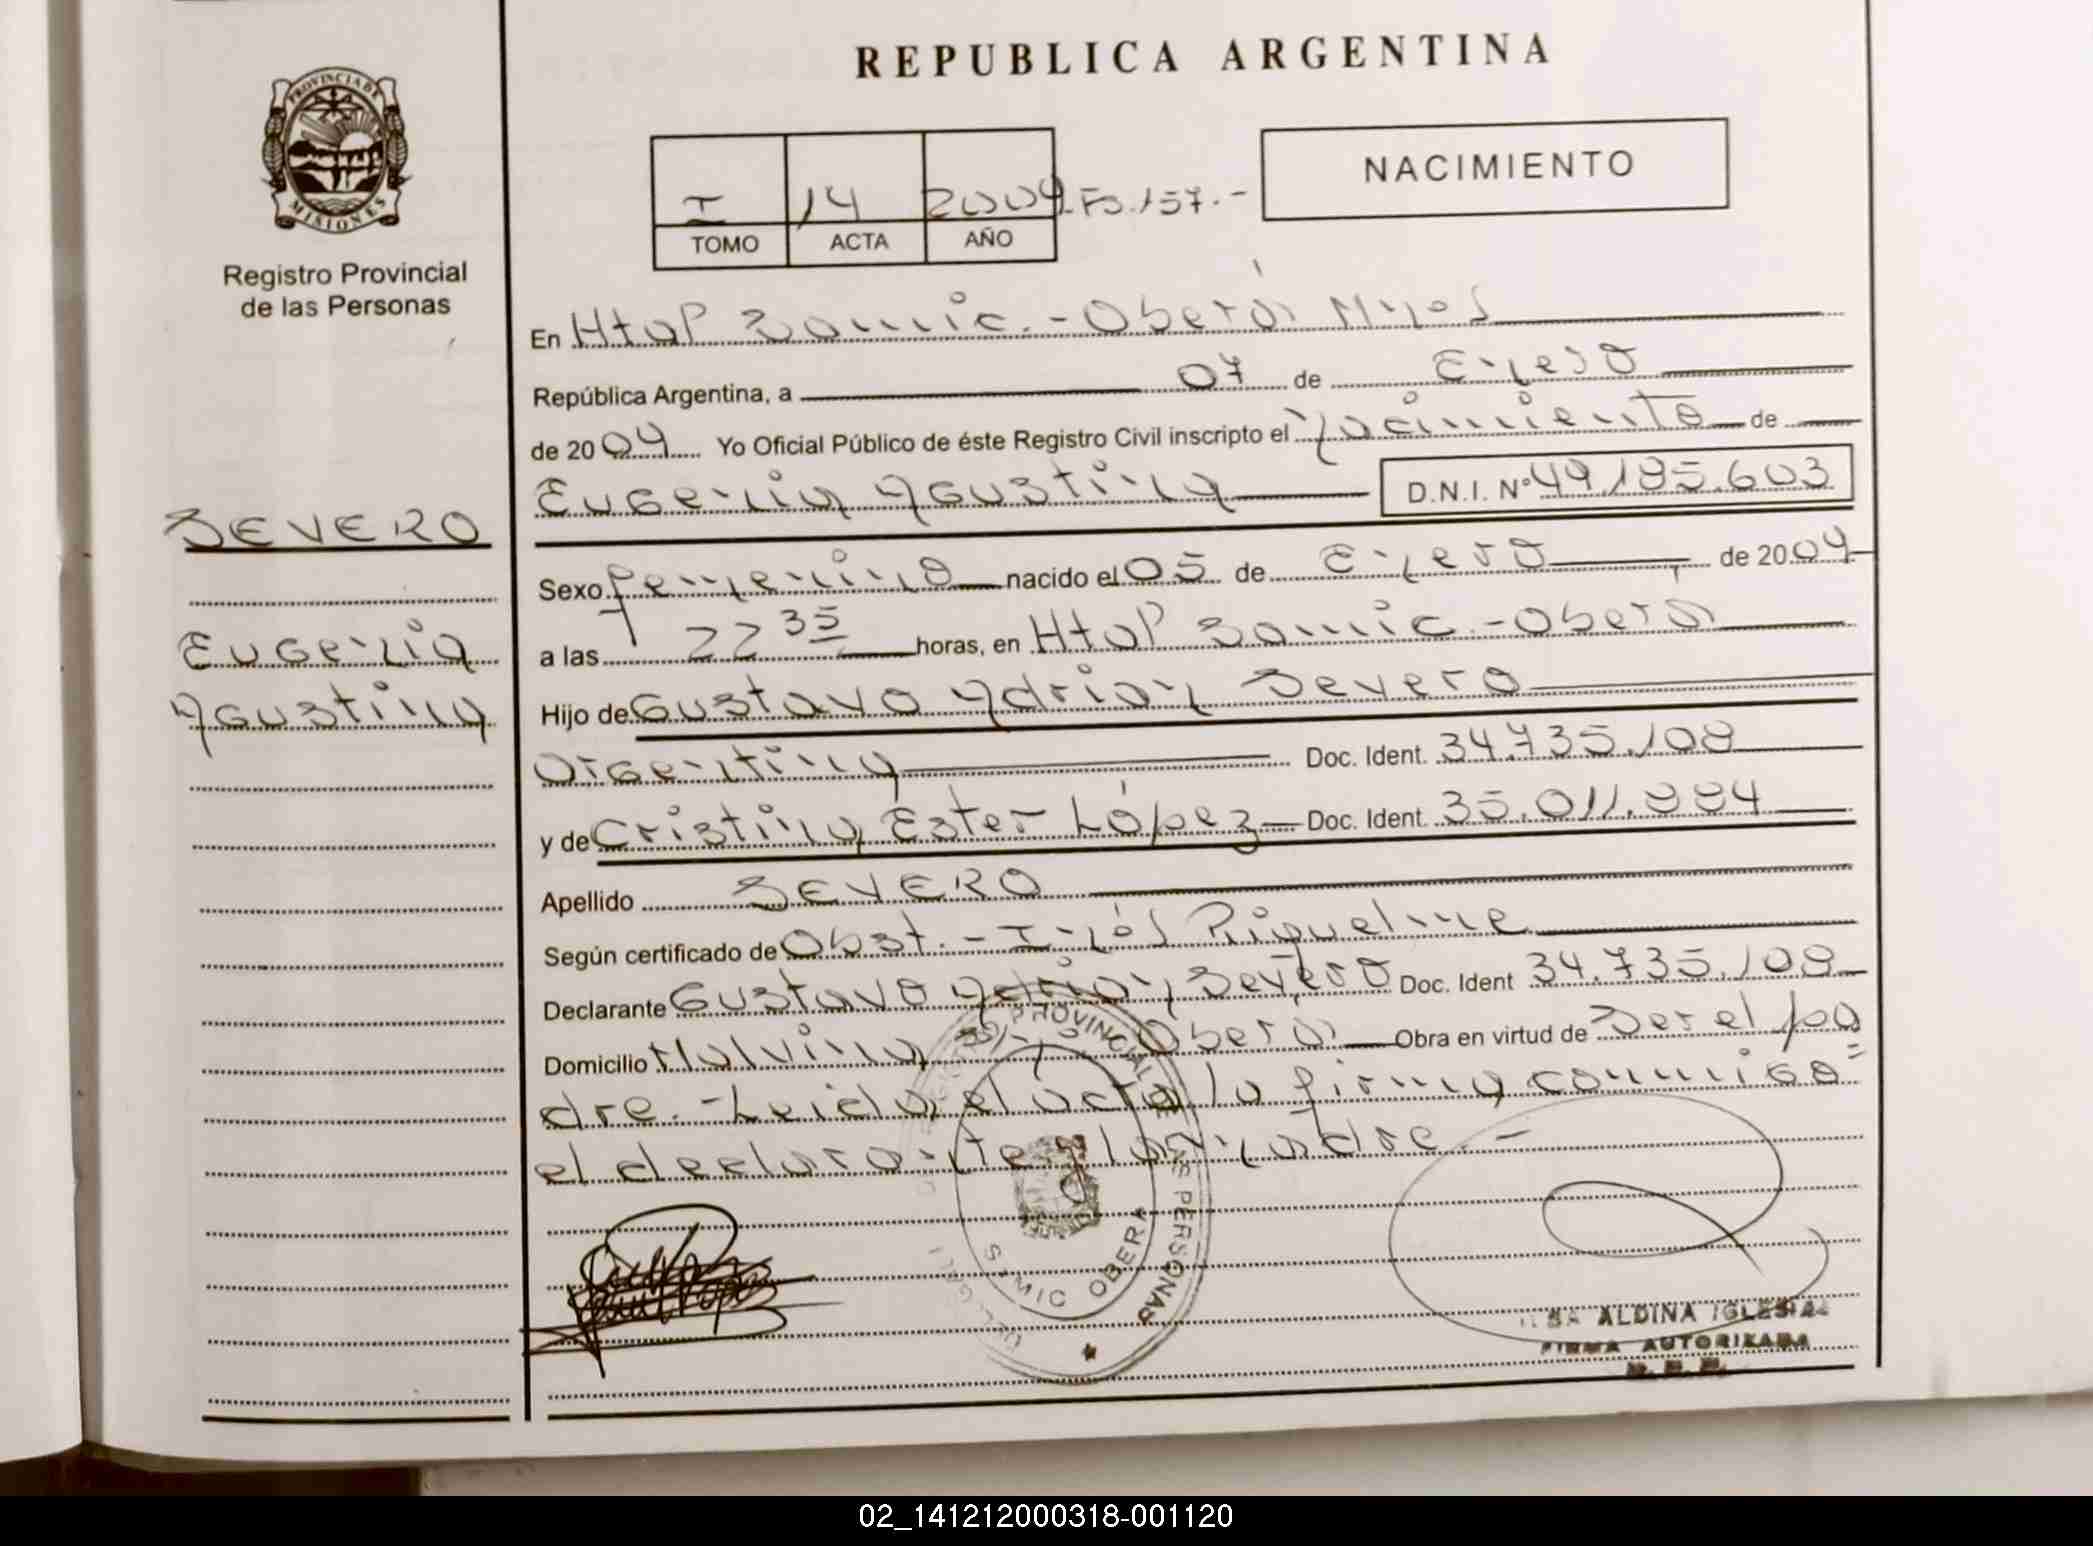 REPUBLICA ARGENTINA
PROVINCIA DE MISIONES
Registro Provincial
de las Personas
I 14 2004 Fo. 157.-
TOMO ACTA AÑO
NACIMIENTO
En Htal Samic.-Oberá Mnes
República Argentina, a 07 de Enero
de 2004 Yo Oficial Público de éste Registro Civil inscripto el Nacimiento de
Eugenia Agustina D.N.I. Nº 49.185.603
SEVERO
Eugenia
Agustina
Sexo femenino nacido el 05 de Enero de 2004
a las 22 35 horas, en Htal Samic.-Oberá
Hijo de Gustavo Adrian Severo
Argentina Doc. Ident. 34.735.108
y de Cristina Ester López Doc. Ident. 35.011.884
Apellido SEVERO
Según certificado de Obst.- Inés Riquelme
Declarante Gustavo Adrian Severo Doc. Ident 34.735.108
Domicilio Malvinas Oberá Obra en virtud de Ser el pa
dre.-Leida el acta la firma conmigo=
el declarante y la madre.-
PROVINCIAL DE LAS PERSONAS
SAMIC OBERA
ALDINA IGLESIAS
FIRMA AUTORIZADA
02_141212000318-001120